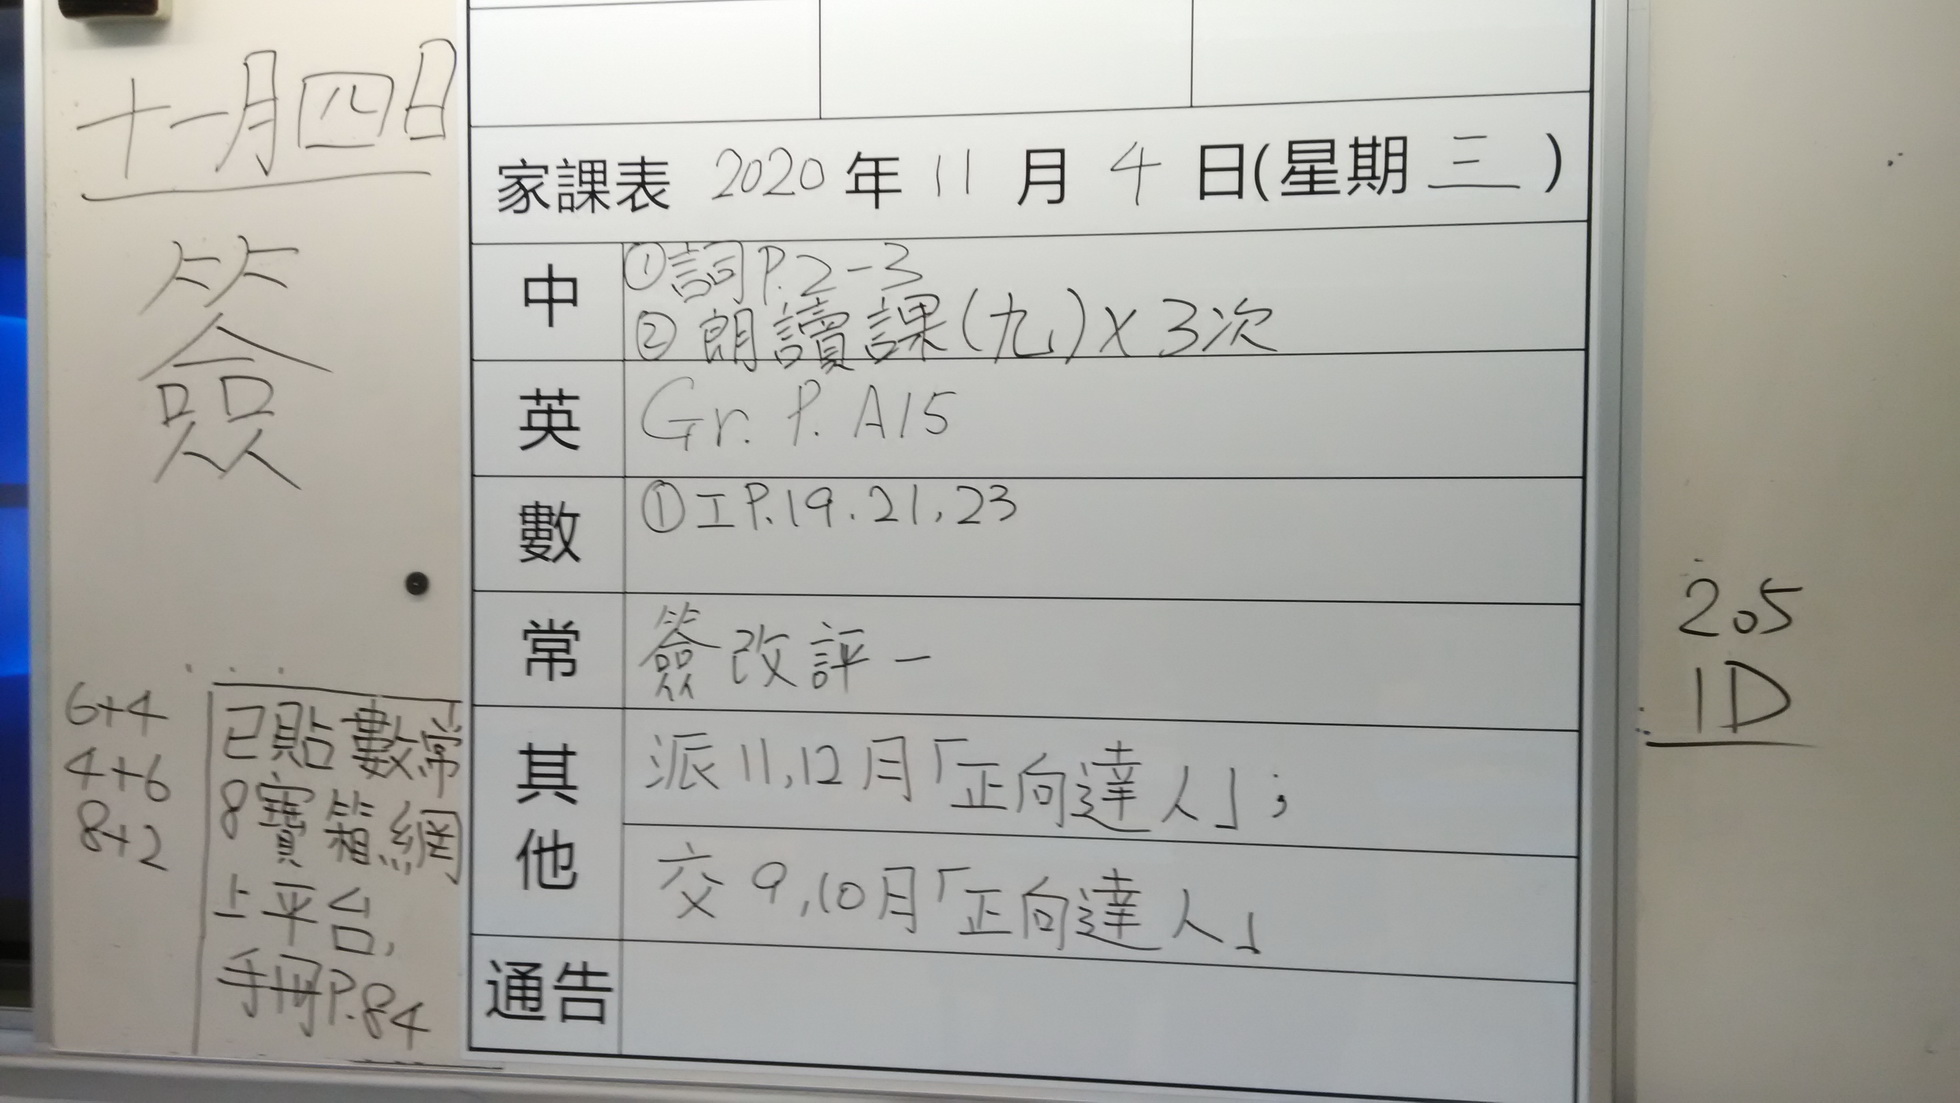 十一月四日
簽
6+4
4+6
8+2
已貼數常
8寶箱網
上平台,
手冊P.84
家課表 2020年11月4日(星期三)
中
①詞P.2-3
②朗讀課(九)×3次
英
Gr. P. A15
數
①工P.19.21,23
常
簽改評一
其他
派11,12月「正向達人」;
交9,10月「正向達人」
通告
205
1D